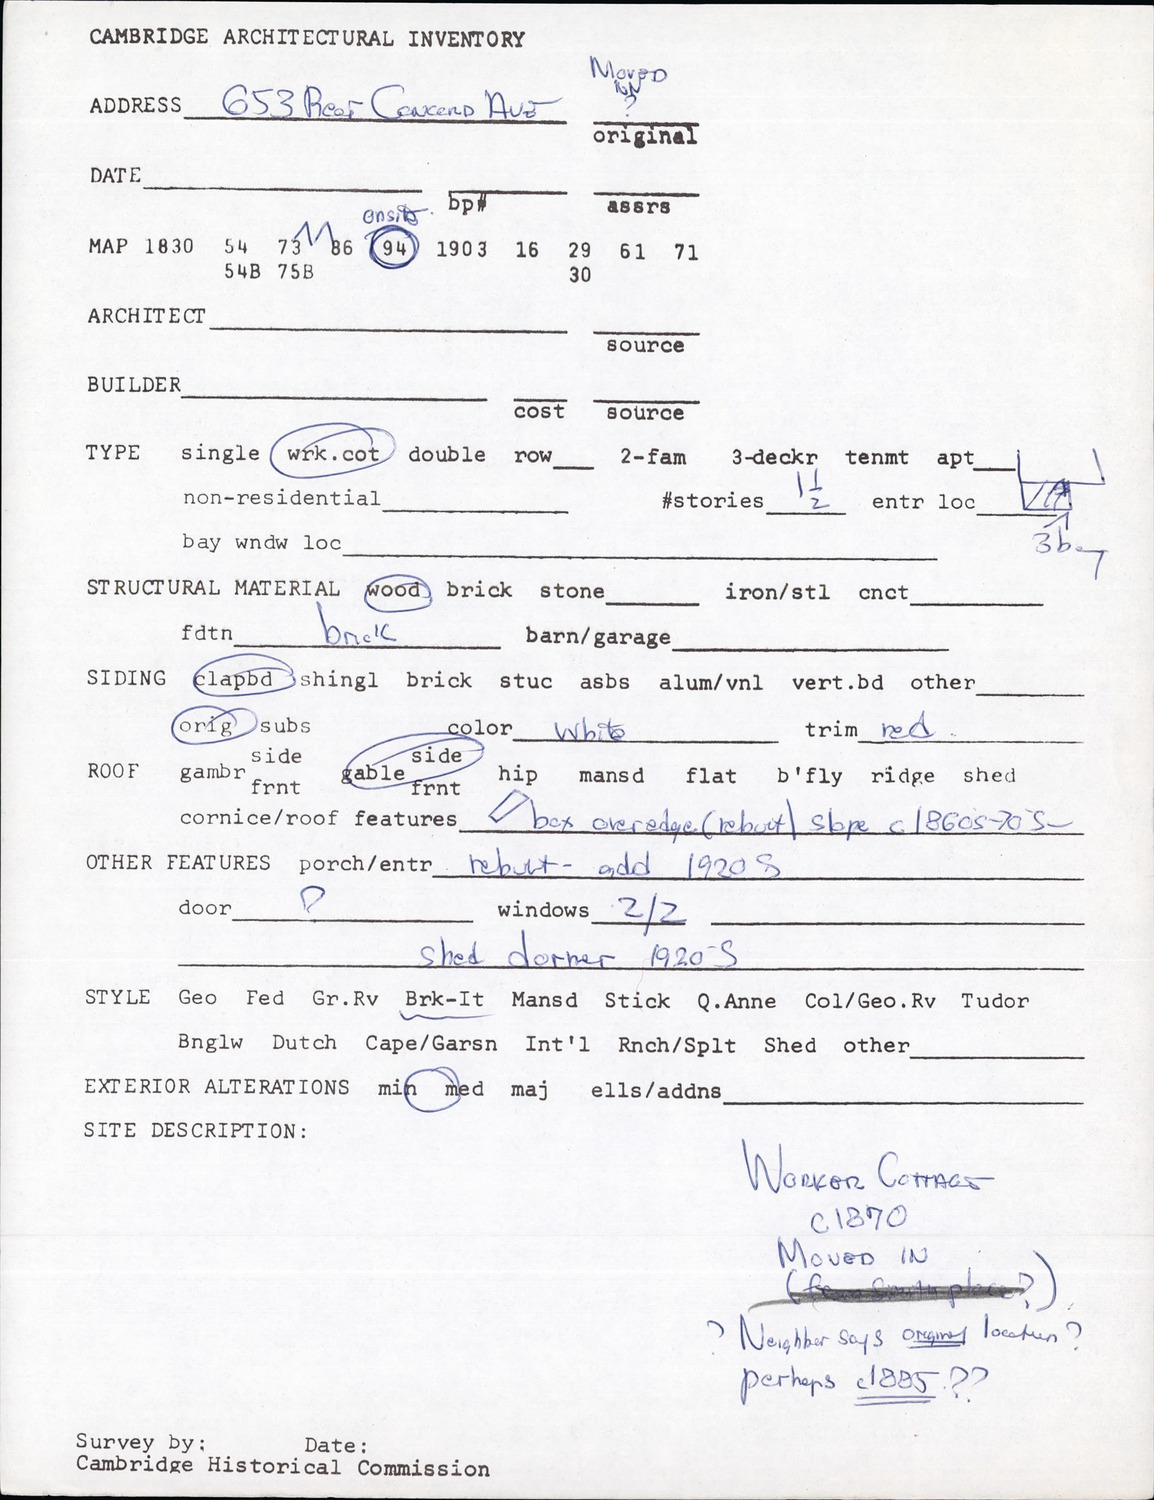 CAMBRIDGE ARCHITECTURAL INVENTORY
MOVED
IN
?
ADDRESS 653 Rear CONCORD AVE
original
DATE
bp#
assrs
onsite
MAP 1830 54 73 86 94 1903 16 29 61 71
54B 75B 30
ARCHITECT
source
BUILDER
cost source
TYPE single wrk.cot double row 2-fam 3-deckr tenmt apt
non-residential #stories 1 1/2 entr loc
3bay
bay wndw loc
STRUCTURAL MATERIAL wood brick stone iron/stl cnct
fdtn brick barn/garage
SIDING clapbd shingl brick stuc asbs alum/vnl vert.bd other
orig subs color white trim red
side side
ROOF gambr gable hip mansd flat b'fly ridge shed
frnt frnt
cornice/roof features box overedge (rebuilt) slope c1860s-70s
OTHER FEATURES porch/entr rebuilt - add 1920s
door ? windows 2/2
shed dormer 1920s
STYLE Geo Fed Gr.Rv Brk-It Mansd Stick Q.Anne Col/Geo.Rv Tudor
Bnglw Dutch Cape/Garsn Int'l Rnch/Splt Shed other
EXTERIOR ALTERATIONS min med maj ells/addns
SITE DESCRIPTION:
WORKER COTTAGE
c1870
MOVED IN
(from place?)
? Neighbor says original location?
perhaps c1885??
Survey by: Date:
Cambridge Historical Commission